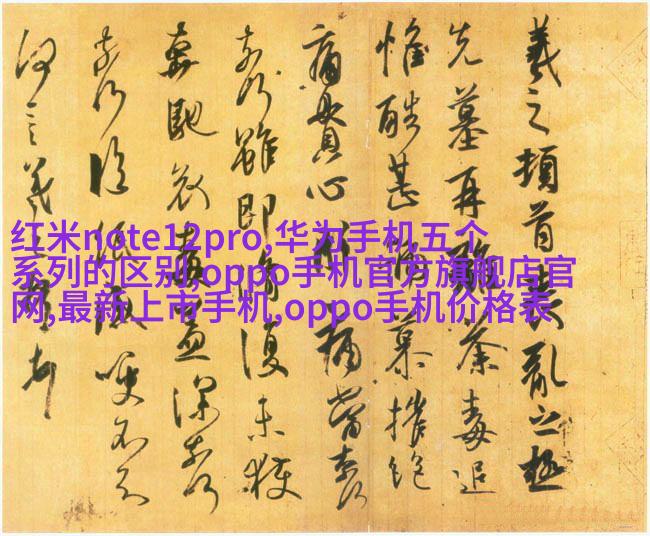 羲之頓首喪亂之極
先墓再離荼毒追
惟酷甚號慕摧絕
痛貫心肝痛當奈何
奈何雖即脩復未獲
奔馳哀毒益深奈何
奈何臨紙感哽不知
何言羲之頓首
红米note12pro,华为手机五个
系列的区别,oppo手机官方旗舰店官
网,最新上市手机,oppo手机价格表